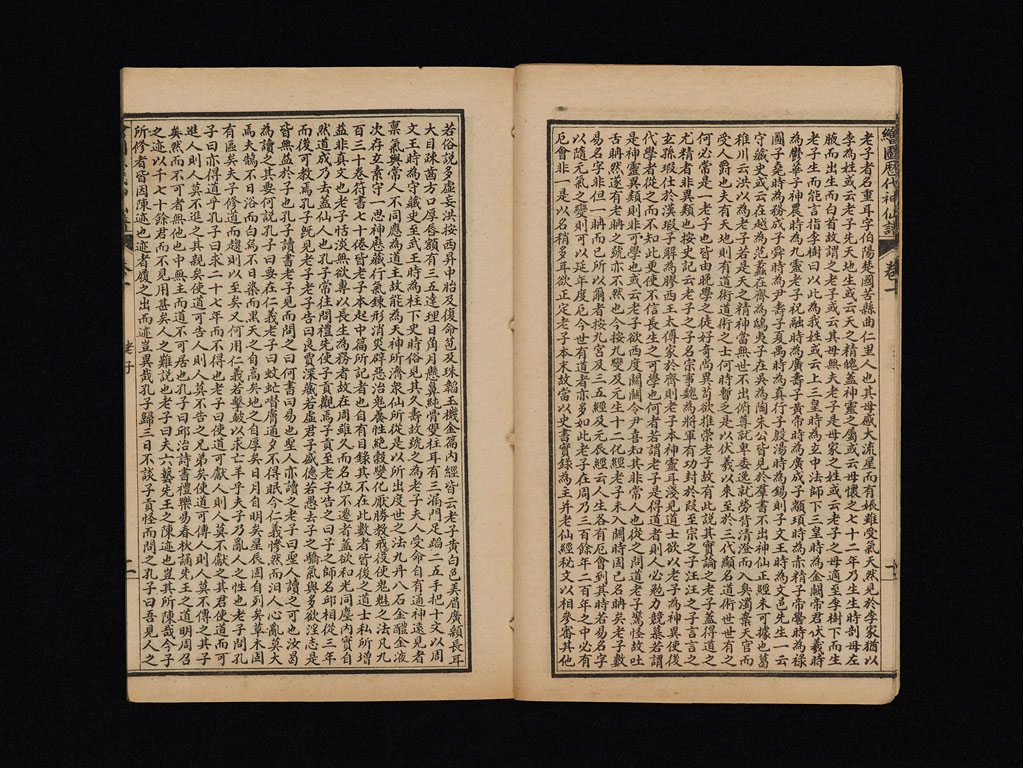 繪圖歷代神仙譜
老子者名重耳字伯陽楚國苦縣曲仁里人也其母感大流星而有娠雖受氣天然見於李家猶以
李為姓或云老子先天地生或云天之精魄蓋神靈之屬或云母懷之七十二年乃生生時剖母左
腋而出生而白首故謂之老子或云其母無夫老子是母家之姓或云老子之母適至李樹下而生
老子生而能言指李樹曰以此為我姓或云上三皇時為立中法師下三皇時為金闕帝君伏羲時
為鬱華子神農時為九靈老子祝融時為廣壽子黃帝時為廣成子顓頊時為赤精子帝嚳時為祿
圖子堯時為務成子舜時為尹壽子夏禹時為真行子殷湯時為錫則子文王時為文邑先生一云
守藏史或云在越為范蠡在齊為鴟夷子在吳為陶朱公皆見於羣書不出神仙正經未可據也葛
稚川云洪以為老子若是天之精神當無世不出俯尊就卑委逸就勞背清澄而入臭濁棄天官而
受人爵也夫有天地則有道術道術之士何時暫乏是以伏羲以來至於三代顯名道術世世有之
何必常是一老子也皆由晚學之徒好奇尚異苟欲推崇老子故有此說其實論之老子蓋得道之
尤精者非異類也按史記云老子之子名宗事魏為將軍有功封於段至宗之子汪汪之子言言之
玄孫瑕仕於漢瑕子解為膠西王太傅家於齊則老子本神靈耳淺見道士欲以老子為神異使後
代學者從之而不知此更使不信長生之可學也何者若謂老子是得道者則人必勉力競慕若謂
是神靈異類則非可學也或云老子欲西度關關令尹喜知其非常人也從之問道老子驚怪故吐
舌聃然遂有老聃之號亦不然也今按九變及元生十二化經老子未入關時固已名聃矣老子數
易名字非但一聃而已所以爾者按九宮及三五經及元辰經云人生各有厄會到其時若易名字
以隨元氣之變則可以延年度厄今世有道者亦多如此老子在周乃三百餘年二百年之中必有
厄會非一是以名稍多耳欲正定老子本末故當以史書實錄為主并老仙經秘文以相參審其他
若俗說多虛妄洪按西昇中胎及復命苞及珠韜玉機金篇內經皆云老子黃白色美眉廣顙長耳
大目疎齒方口厚唇額有三五達理日角月懸鼻純骨雙柱耳有三漏門足蹈二五手把十文以周
文王時為守藏史至武王時為柱下史時俗見其久壽故號之為老子夫人受命自有通神遠見者
稟氣與常人不同應為道主故能為天神所濟衆仙所從是以所出度世之法九丹八石金醴金液
次存玄素守一思神歷藏行氣鍊形消災辟惡治鬼養性絶穀變化厭勝教戒役使鬼魅之法凡九
百三十卷符書七十卷皆老子本起中篇所記者也自有目錄其不在此數者皆後之道士私所增
益非真文也老子恬淡無欲專以長生為務者故在周雖久而名位不遷者蓋欲和光同塵內實自
然道成乃去蓋仙人也孔子常往問禮先使子貢觀焉子貢至老子告之曰子之師名邱相從三年
而後可教焉孔子既見老子老子告曰良賈深藏若虛君子盛德若愚去子之驕氣與多欲淫志是
皆無益於子也孔子讀書老子見而問之曰何書曰易也聖人亦讀之老子曰聖人讀之可也汝曷
為讀之其要何說孔子曰要在仁義老子曰蚊虻噆膚通夕不得眠今仁義慘然而汩人心亂莫大
焉夫鵠不日浴而白烏不日染而黑天之自高矣地之自厚矣日月自明矣星辰固自列矣草木固
有區矣夫子修道而趨則以至矣又何用仁義若擊鼓以求亡羊乎夫子乃亂人之性也老子問孔
子曰亦得道乎孔子曰求二十七年而不得也老子曰使道可獻人則人莫不獻之其君使道而可
進人則人莫不進之其親矣使道可告人則人莫不告之兄弟矣使道可傳人則人莫不傳之其子
矣然而不可者無他也中無主而道不可居也孔子曰邱治詩書禮樂易春秋誦先王之道明周召
之迹以干七十餘君而不見用甚矣人之難說也老子曰夫六藝先王之陳迹也豈其所陳哉今子
所修者皆因陳迹也迹者履之出而迹豈異哉孔子歸三日不談子貢怪而問之孔子曰吾見人之
老子
二